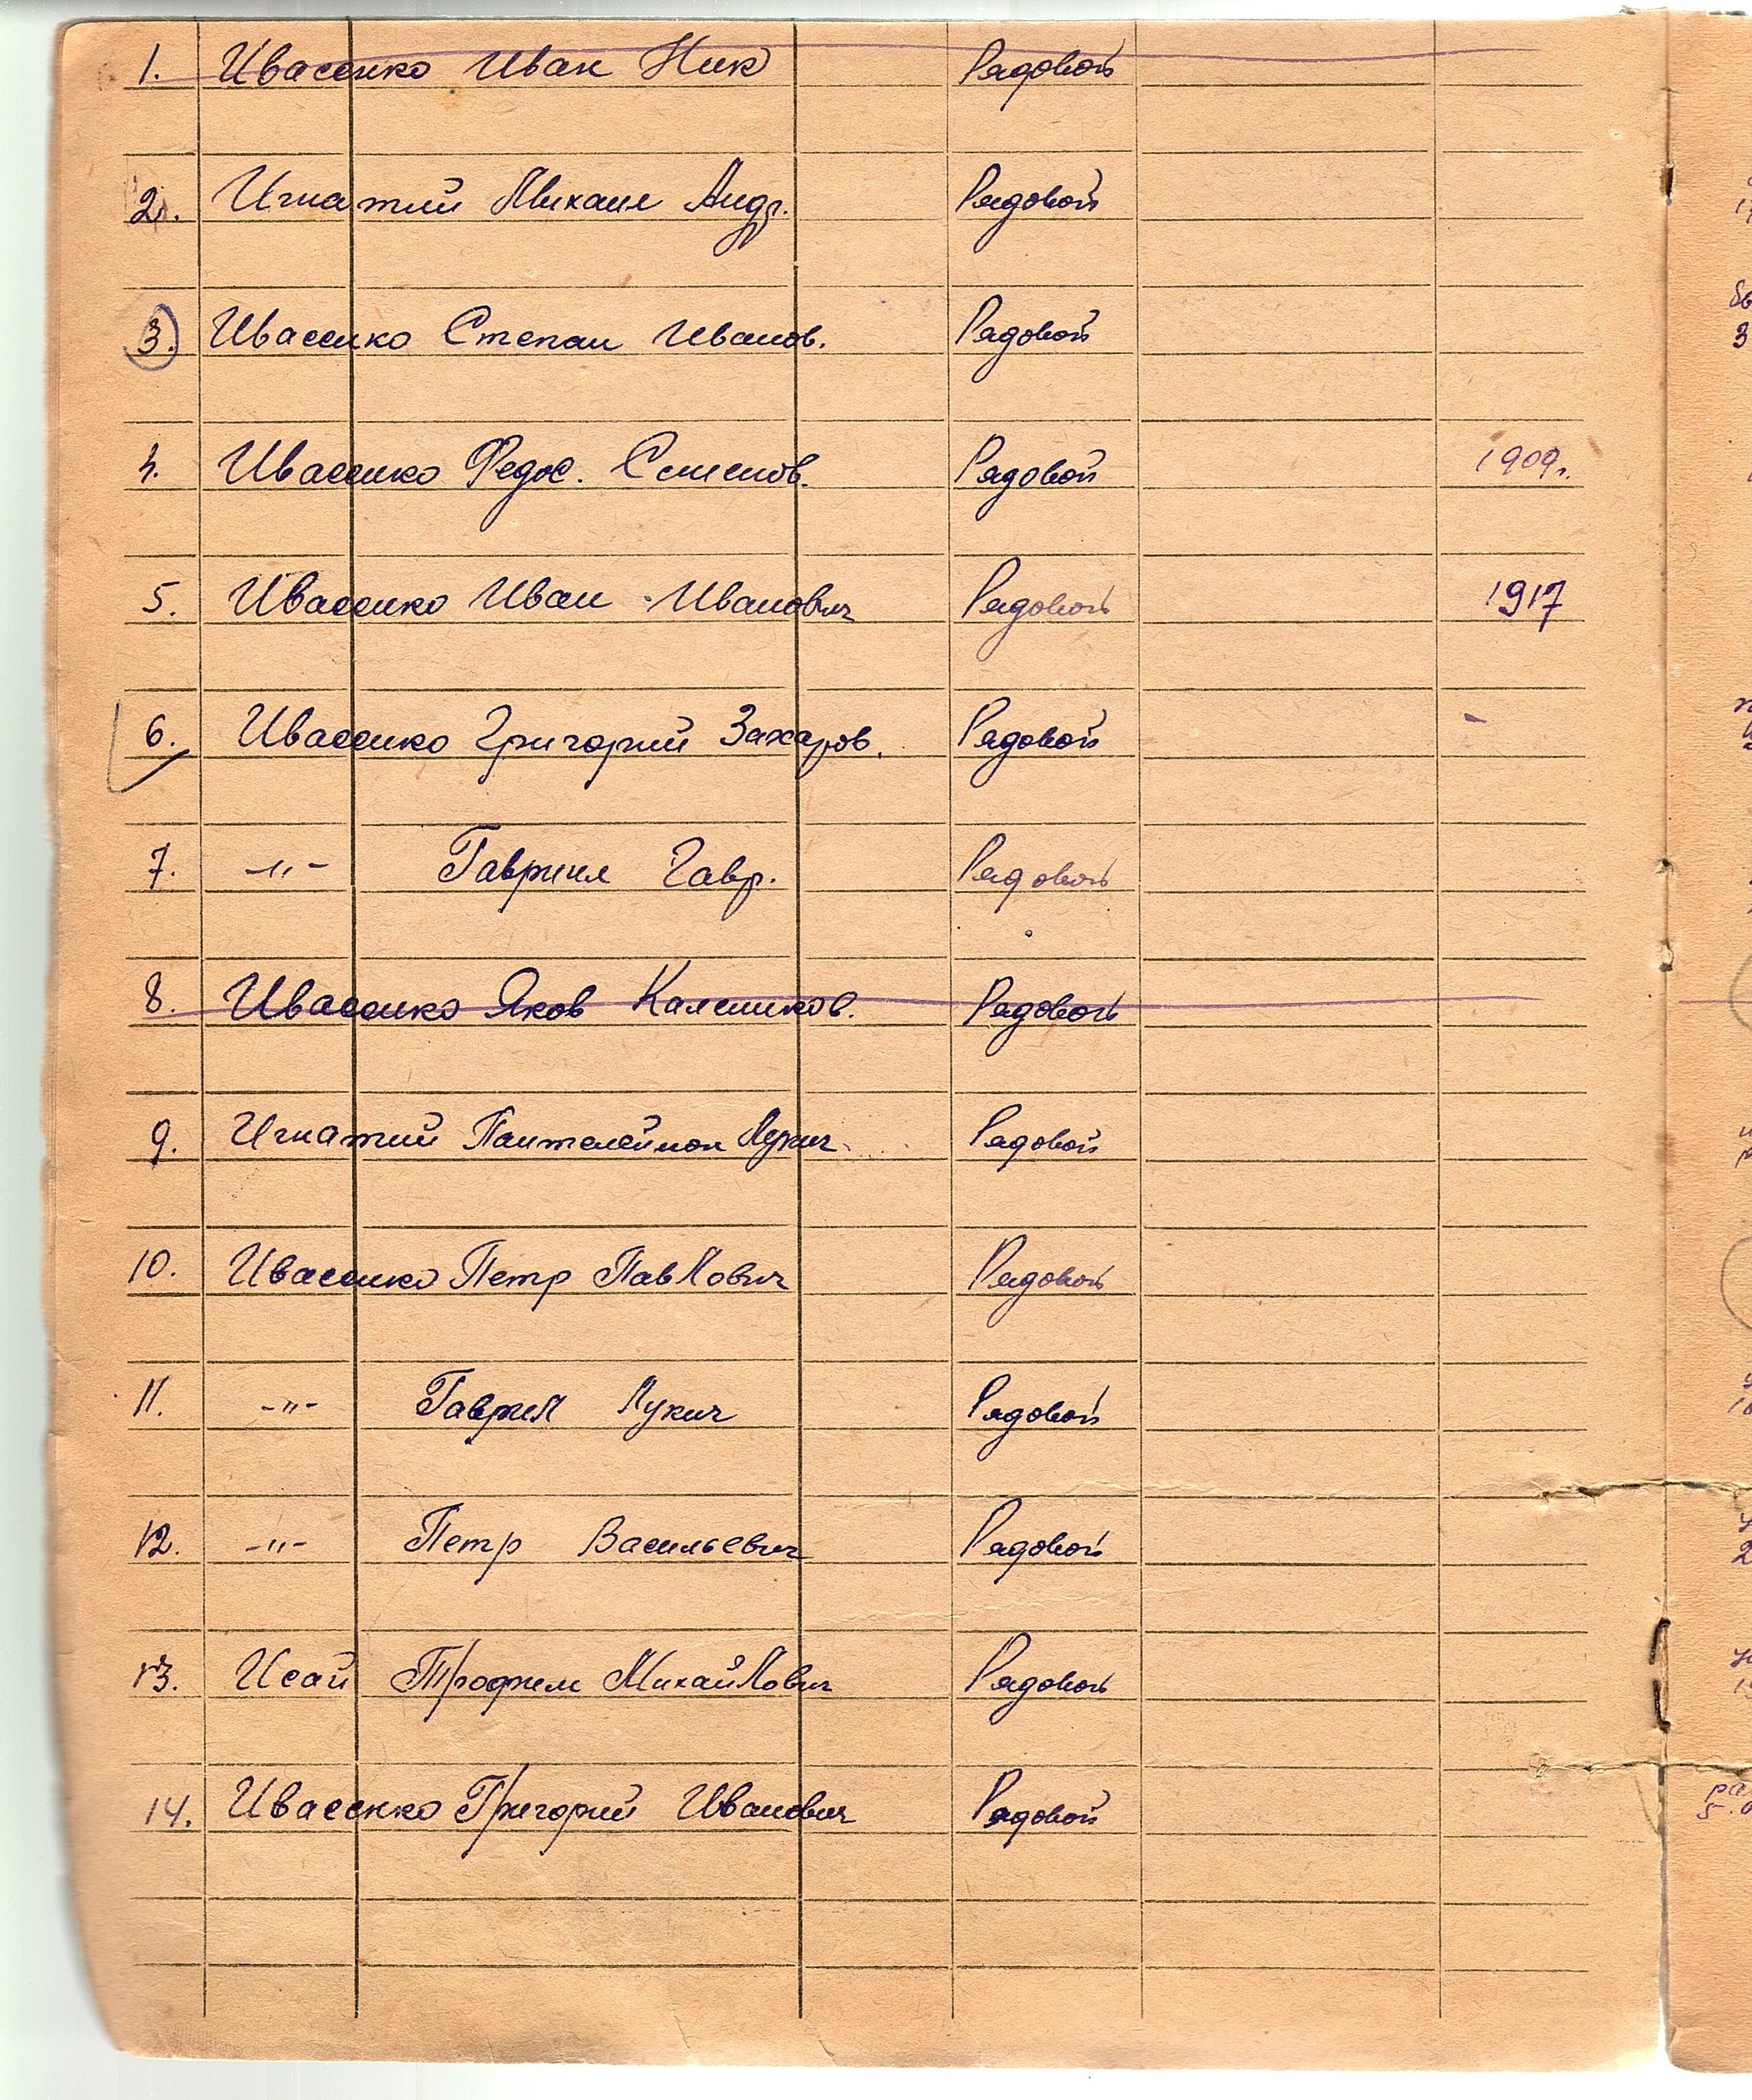 1. Ивасенко Иван Ник Рядовой
2. Игнатий Михаил Андр. Рядовой
3. Ивасенко Степан Иванов. Рядовой
4. Ивасенко Федос. Семенов. Рядовой 1909г.
5. Ивасенко Иван Иванович Рядовой 1917
6. Ивасенко Григорий Захаров. Рядовой -
7. -"- Гавриил Гавр. Рядовой
8. Ивасенко Яков Калеников. Рядовой
9. Игнатий Пантелеймон Лукич Рядовой
10. Ивасенко Петр Павлович Рядовой
11. -"- Гаврил Лукич Рядовой
12. -"- Петр Васильевич Рядовой
13. Исай Трофим Михайлович Рядовой
14. Ивасенко Григорий Иванович Рядовой